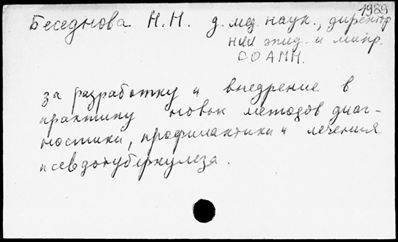 1989
Беседнова Н.Н. д. мед. наук., директор
НИИ эпид. и микр.
СО АМН.
за разработку и внедрение в
практику новых методов диаг-
ностики, профилактики и лечения
псевдотуберкулеза.